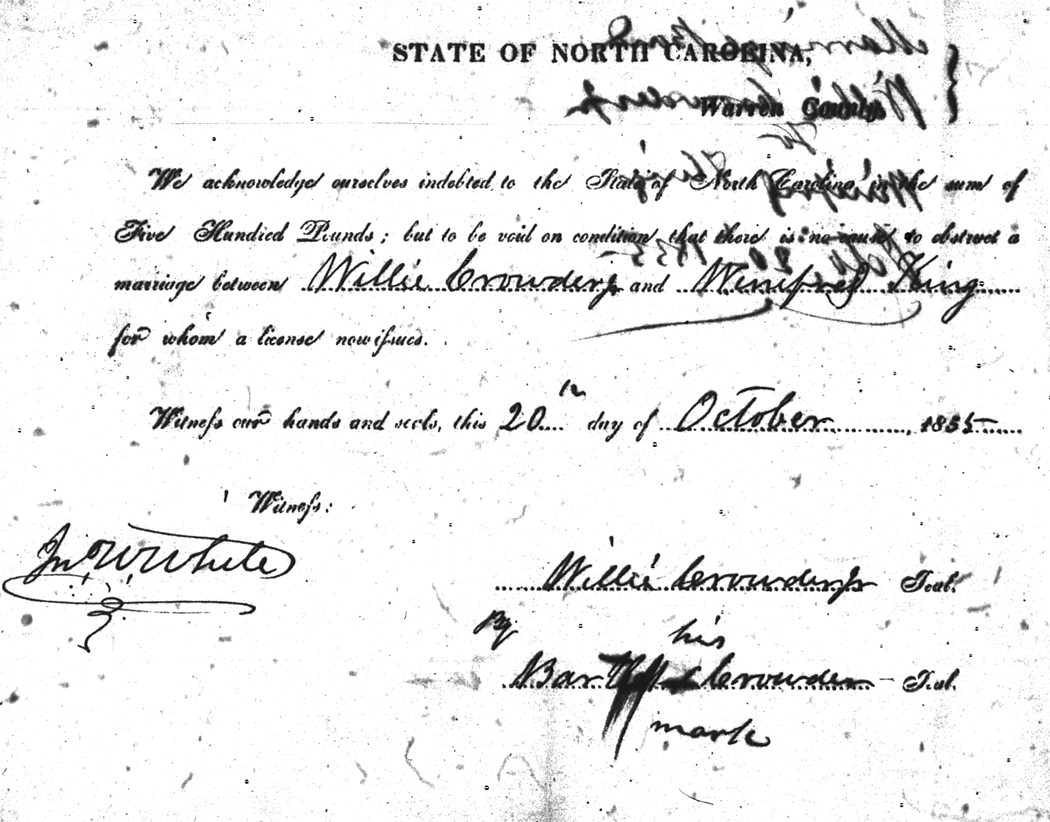 STATE OF NORTH CAROLINA,
Warren County
We acknowledge ourselves indebted to the State of North Carolina in the sum of
Five Hundred Pounds; but to be void on condition that there is no cause to obstruct a
marriage between Willie Crowder Jr and Winifred King
for whom a license now issues.
Witness our hands and seals, this 20th day of October, 1855
Witness:
Jno W White
Willie Crowder Jr Seal.
By his
Crowder Seal.
mark